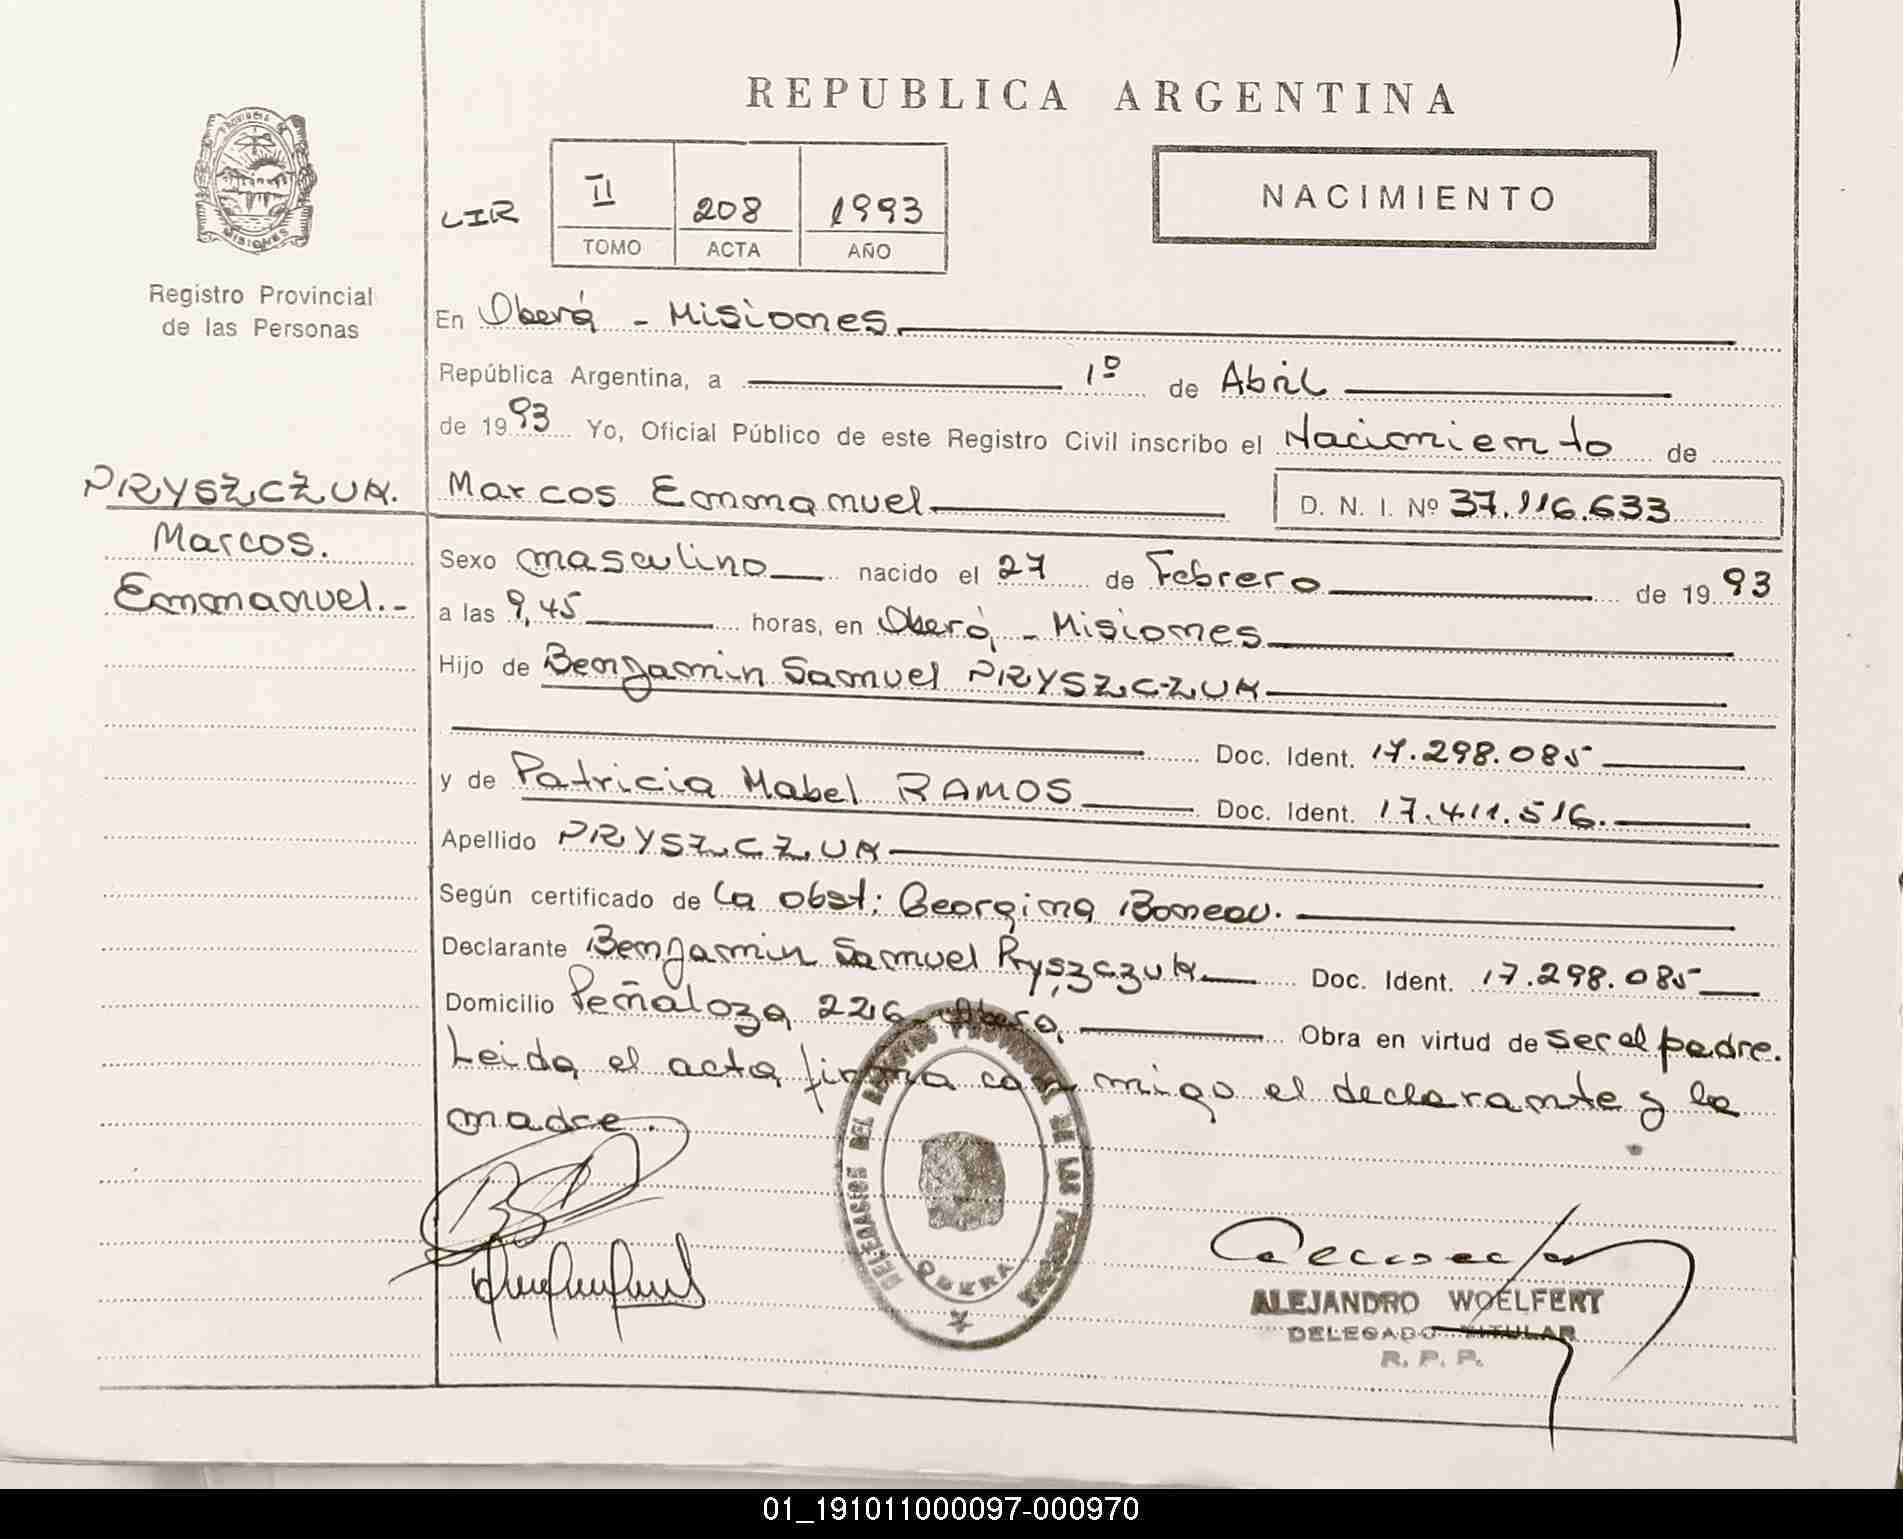 REPUBLICA ARGENTINA
PROVINCIA DE MISIONES
Registro Provincial
de las Personas
LIR
II 208 1993
TOMO ACTA AÑO
NACIMIENTO
En Oberá - Misiones
República Argentina, a 1º de Abril
de 1993 Yo, Oficial Público de este Registro Civil inscribo el Nacimiento de
PRYSZCZUK.
Marcos.
Emmanuel.-
Marcos Emmanuel D. N. I. Nº 37.116.633
Sexo masculino nacido el 27 de Febrero de 1993
a las 9,45 horas, en Oberá - Misiones
Hijo de Benjamin Samuel PRYSZCZUK
Doc. Ident. 17.298.085
y de Patricia Mabel RAMOS Doc. Ident. 17.411.516.
Apellido PRYSZCZUK
Según certificado de la obst: Georgina Boneau.
Declarante Benjamin Samuel Pryszczuk Doc. Ident. 17.298.085
Domicilio Peñaloza 226 Oberá, Obra en virtud de ser el padre.
Leida el acta, firma con migo el declarante y la
madre.
DELEGACION DEL REGISTRO PROVINCIAL DE LAS PERSONAS
OBERA
ALEJANDRO WOELFERT
DELEGADO TITULAR
R. P. P.
01_191011000097-000970